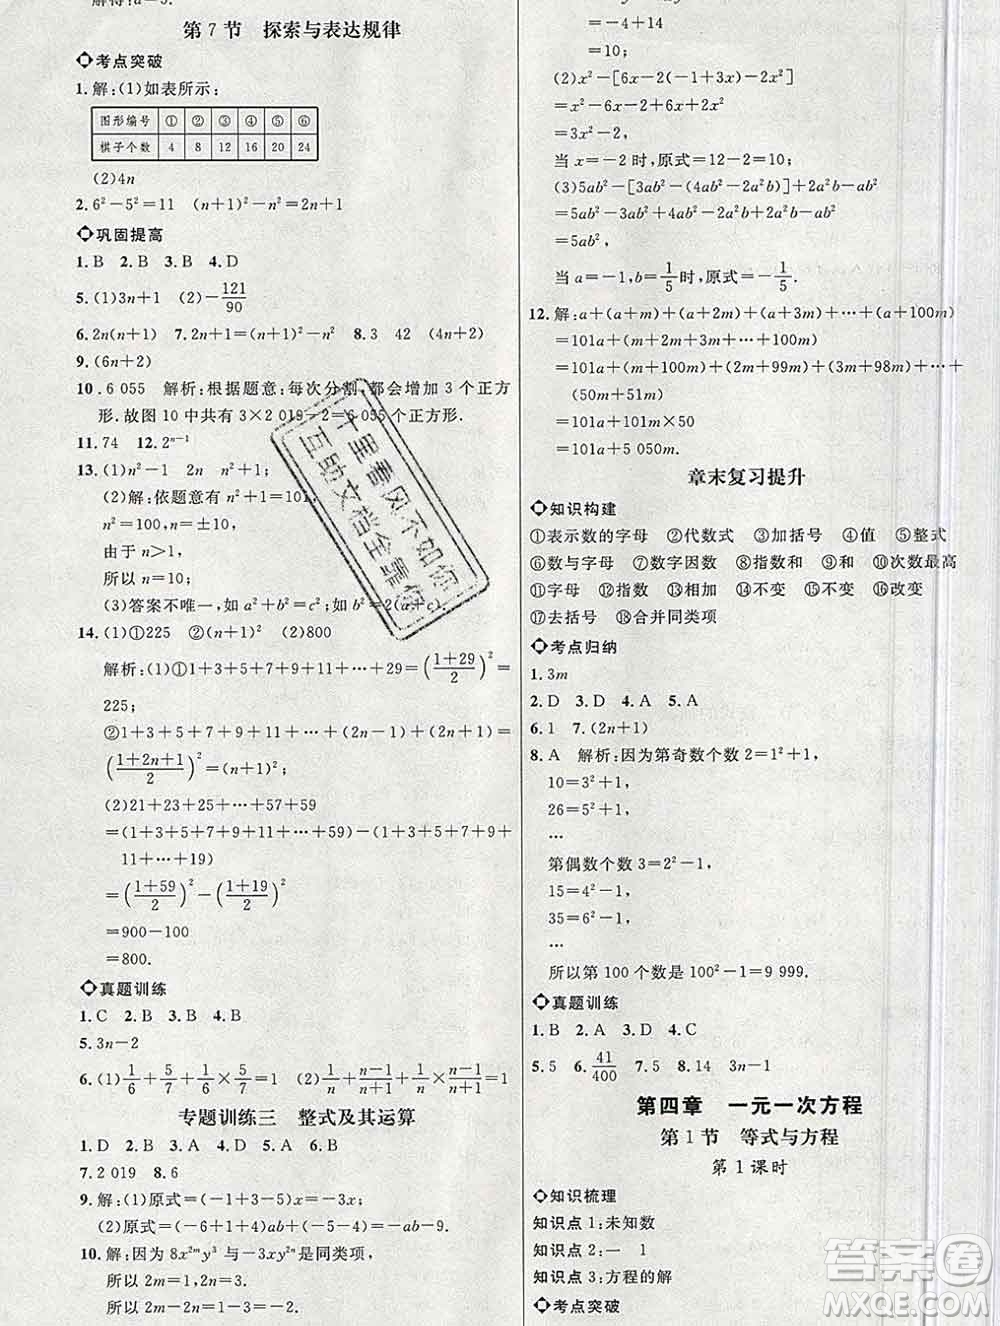 解得:a=5.
第7节 探索与表达规律
考点突破
1.解:(1)如表所示:
图形编号 ① ② ③ ④ ⑤ ⑥
棋子个数 4 8 12 16 20 24
(2)4n
2.6²-5²=11 (n+1)²-n²=2n+1
巩固提高
1.B 2.B 3.B 4.D
5.(1)3n+1 (2)-121/90
6.2n(n+1) 7.2n+1=(n+1)²-n² 8.3 42 (4n+2)
9.(6n+2)
10.6 055 解析:根据题意:每次分割,都会增加3个正方
形.故图10中共有3×2 019-2=6 055个正方形.
11.74 12.2ⁿ⁻¹
13.(1)n²-1 2n n²+1
(2)解:依题意有n²+1=101,
n²=100,n=±10,
由于n>1,
所以n=10;
(3)答案不唯一,如a²+b²=c²;如b²=2(a+c).
14.(1)①225 ②(n+1)² (2)800
解析:(1)①1+3+5+7+9+11+…+29=((1+29)/2)²=
225;
②1+3+5+7+9+11+…+(2n-1)+(2n+1)=
((1+2n+1)/2)²=(n+1)²;
(2)21+23+25+…+57+59
=(1+3+5+7+9+…+59)-(1+3+5+7+9+
11+…+19)
=((1+59)/2)²-((1+19)/2)²
=900-100
=800.
真题训练
1.C 2.B 3.B 4.B
5.3n-2
6.(1)1/6+5/7+1/6×5/7=1 (2)1/n+(n-1)/(n+1)+1/n×(n-1)/(n+1)=1
专题训练三 整式及其运算
1.D 2.D 3.C 4.A 5.D 6.B
7.2 019 8.6
9.解:(1)原式=(-1+3-5)x=-3x;
(2)原式=(-6+1+4)ab+ab-9=-ab-9.
10.解:因为8x²ᵐy³与-3xy²ⁿ是同类项,
所以2m=1,2n=3.
所以2m-2n=1-3=-2.
=6-4+8
=10;
(2)x²-[6x-2(-1+3x)-2x²]
=x²-6x-2+6x+2x²
=3x²-2,
当x=-2时,原式=12-2=10;
(3)5ab²-[3ab-2(-2ab²+ab)]+(ab+4ab²)
=5ab²-3ab-4ab²+2ab+ab+4ab²
=5ab²,
当a=-1,b=1/5时,原式=-1/5.
12.解:a+(a+m)+(a+2m)+(a+3m)+…+(a+100m)
=101a+(m+2m+3m+…+100m)
=101a+(m+100m)+(2m+99m)+(3m+98m)+…+
(50m+51m)
=101a+101m×50
=101a+5 050m.
章末复习提升
知识构建
①表示数的字母 ②代数式 ③加括号 ④值 ⑤整式
⑥数与字母 ⑦数字因数 ⑧指数和 ⑨和 ⑩次数最高
⑪字母 ⑫指数 ⑬相加 ⑭不变 ⑮不变 ⑯改变
⑰去括号 ⑱合并同类项
考点归纳
1.3m
2.D 3.D 4.A 5.A
6.1 7.(2n+1)
8.A 解析:因为第奇数个数2=1²+1,
10=3²+1,
26=5²+1,
…
第偶数个数3=2²-1,
15=4²-1,
35=6²-1,
…
所以第100个数是100²-1=9 999.
真题训练
1.B 2.A 3.D 4.C
5.5 6.41/400 7.5 8.14 3n-1
第四章 一元一次方程
第1节 等式与方程
第1课时
知识梳理
知识点1:未知数
知识点2:一 1
知识点3:方程的解
考点突破
十里春风不如你
互助文档全靠你
答案圈
MXQE.COM